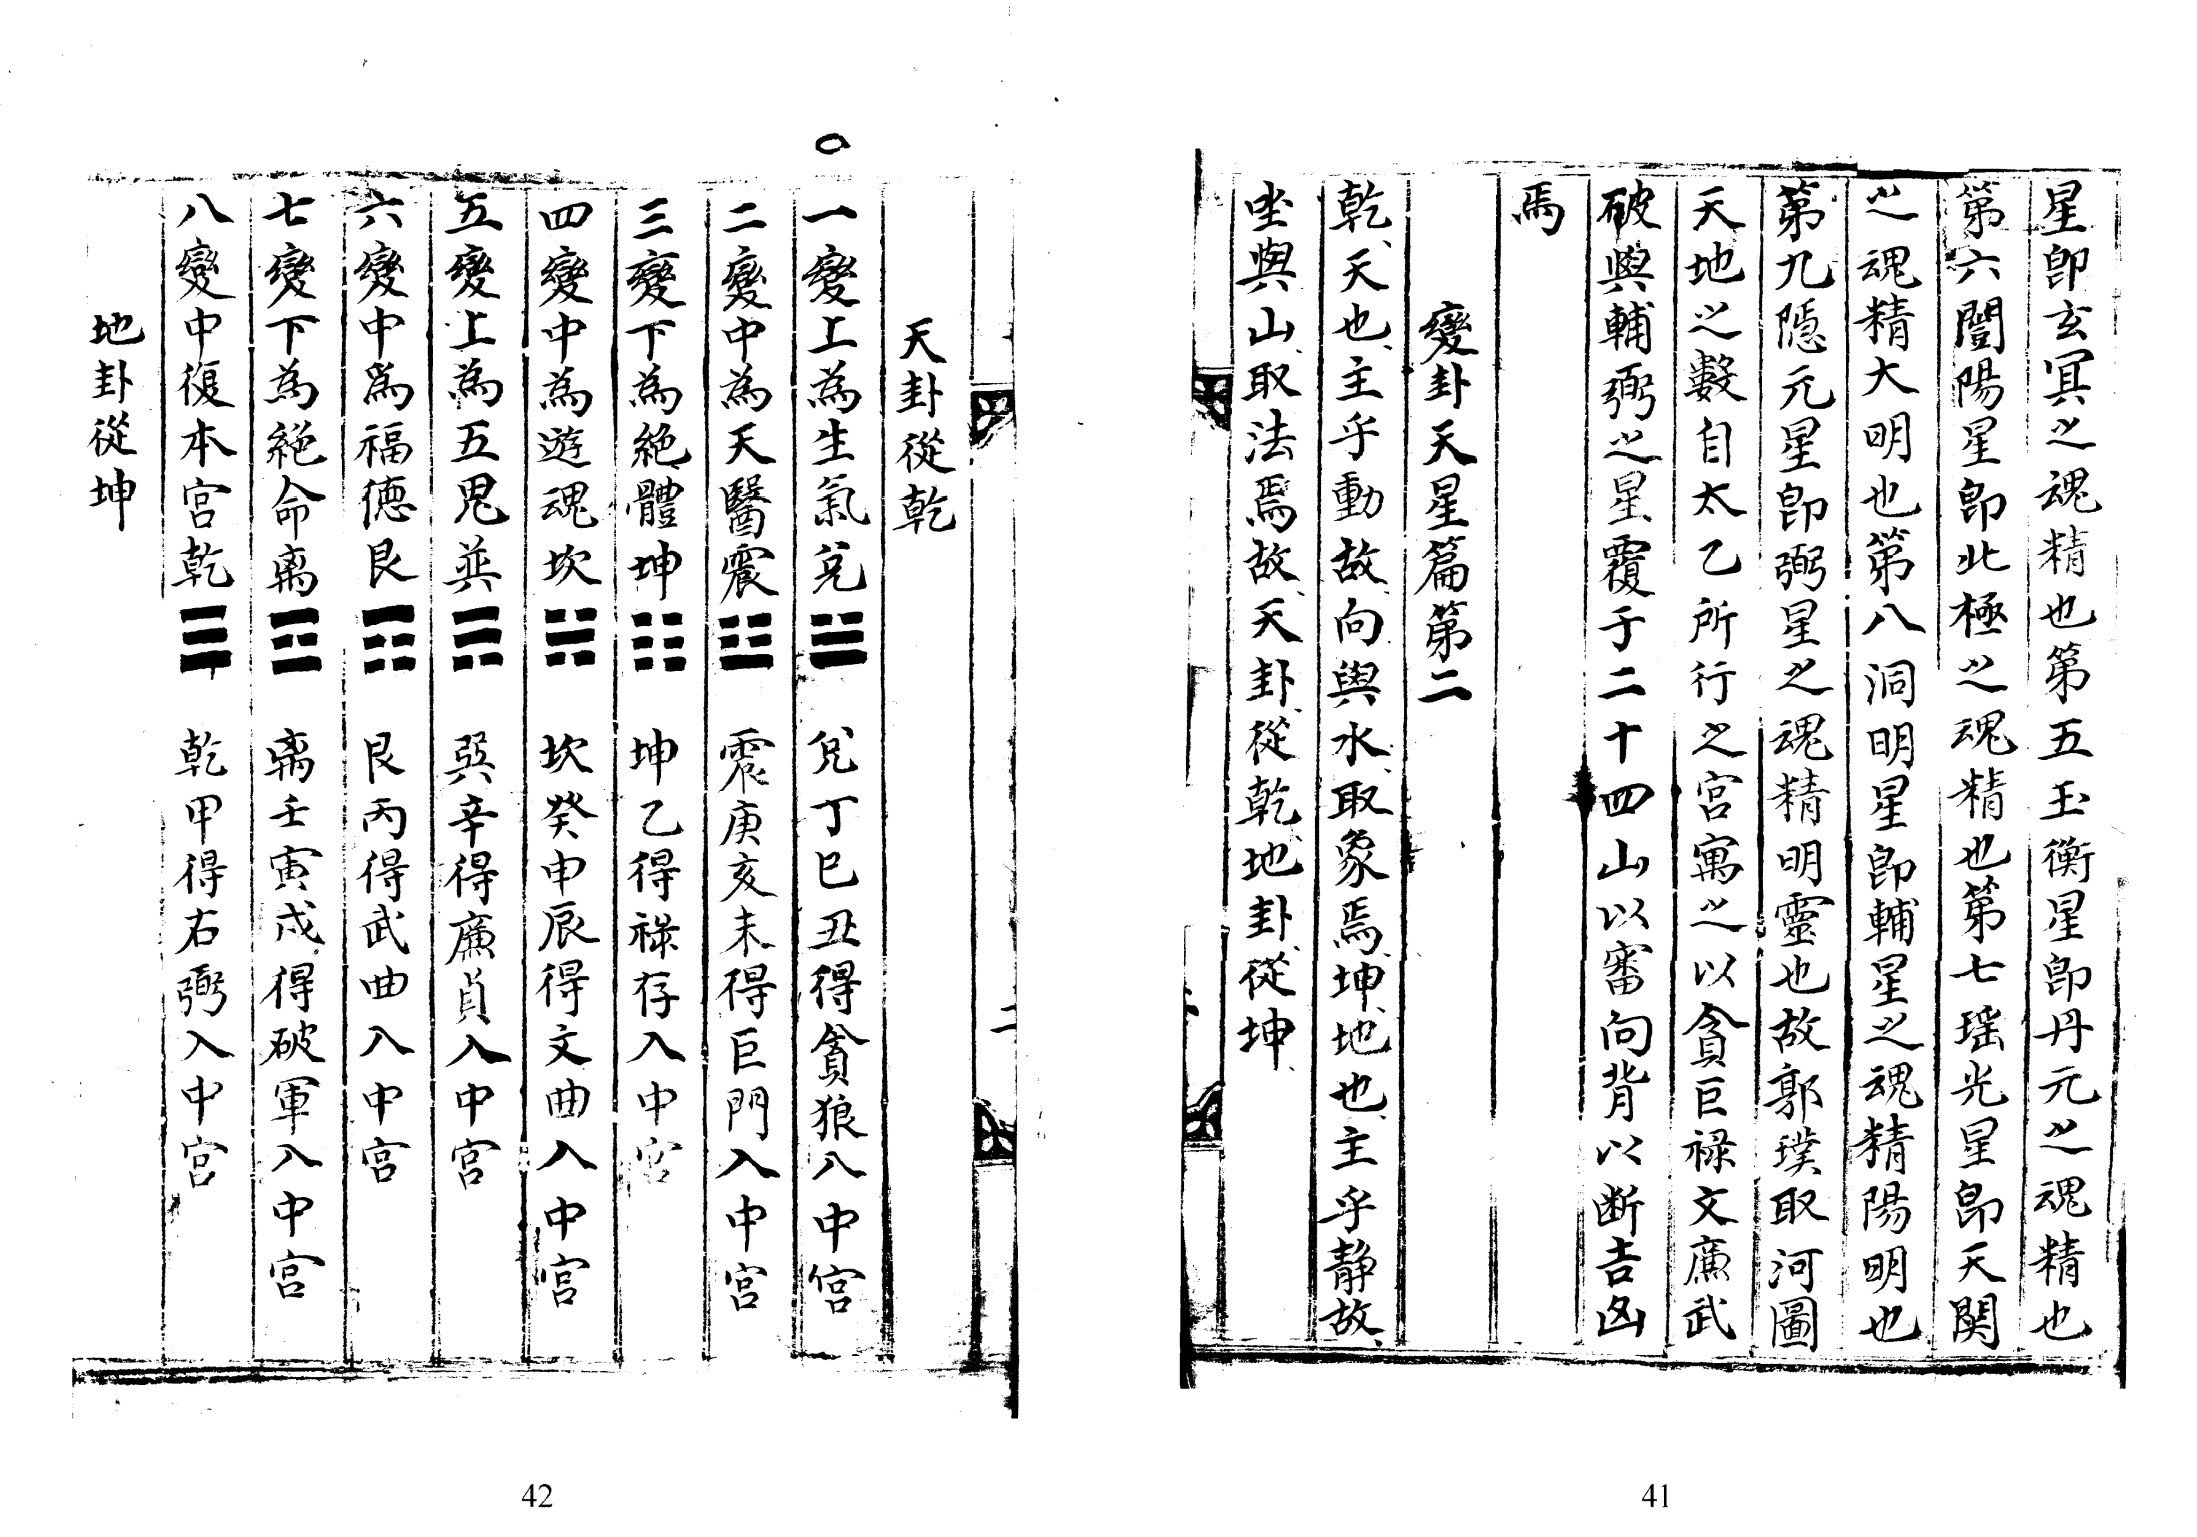 星卽玄冥之魂精也第五玉衡星卽丹元之魂精也
第六闓陽星卽北極之魂精也第七瑶光星卽天関
之魂精大明也第八洞明星卽輔星之魂精陽明也
第九隐元星卽弼星之魂精明靈也故郭璞取河圖
天地之數自太乙所行之宫寓之以貪巨祿文廉武
破與輔弼之星覆于二十四山以審向背以断吉凶
焉
變卦天星篇第二
乾天也主乎動故向與水取象焉坤地也主乎静故
坐與山取法焉故天卦從乾地卦從坤
41
二
天卦從乾
一變上為生氣兌☱ 兌丁巳丑得貪狼入中宫
二變中為天醫震☳ 震庚亥未得巨門入中宫
三變下為絕體坤☷ 坤乙得祿存入中宫
四變中為遊魂坎☵ 坎癸申辰得文曲入中宫
五變上為五鬼巽☴ 巽辛得廉貞入中宫
六變中為福德艮☶ 艮丙得武曲入中宫
七變下為絕命离☲ 离壬寅戌得破軍入中宫
八變中復本宫乾☰ 乾甲得右弼入中宫
地卦從坤
42